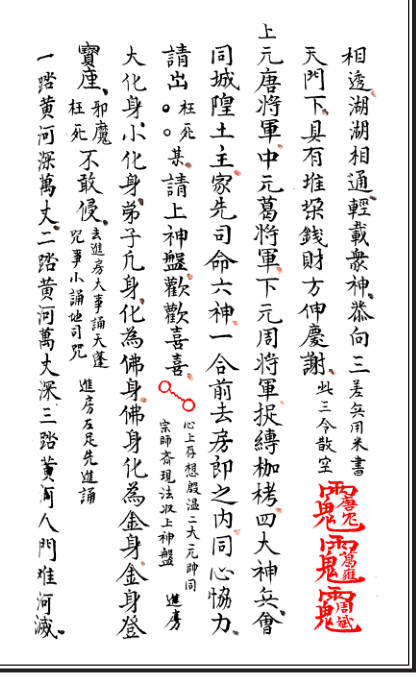 相透湖湖相通、輕載衆神、恭向三差兵用米書
天門下、具有堆垛錢財方伸慶謝、此三令散空
唐宏 葛雍 周斌
上元唐將軍、中元葛將軍、下元周將軍捉縛枷栲、四大神兵、會
同城隍土主家先司命六神一合前去房郎之内同心恊力、
請出枉死。。某、請上神盤歡歡喜喜、心上存想殷温二大元帥同宗師斉現法収上神盤 進房
大化身、小化身、弟子凢身、化為佛身、佛身化為金身、金身登
寶座、邪魔枉死不敢侵、去進房大事誦天蓬咒事小誦地司咒 進房左足先進誦
一踏黄河深萬丈、二踏黄河萬丈深、三踏黄河人門堆河滅、